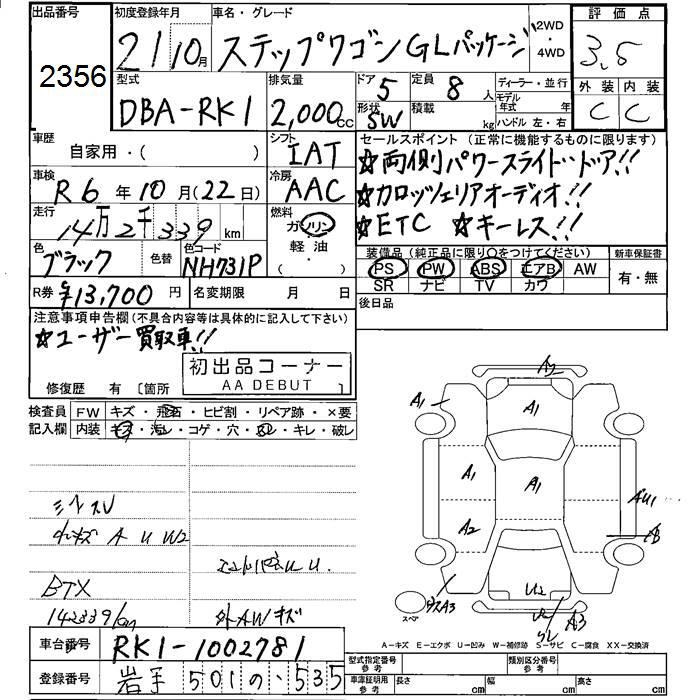 出品番号 初度登録年月 車名・グレード 評価点
2356 21 10月 ステップワゴン GLパッケージ 2WD・4WD 3.5
型式 排気量 ドア 5 定員 8人 ディーラー・並行 外装 内装
DBA-RK1 2,000cc 形状 SW 積載 kg モデル年式 年 ハンドル 左・右 C C
車歴 シフト セールスポイント (正常に機能するものに限ります)
自家用・( ) IAT ☆両側パワースライドドア!!
車検 冷房 ☆カロッツェリアオーディオ!!
R6年10月(22日) AAC ☆ETC ☆キーレス!!
走行 燃料
14万2千339km ガソリン 軽油 ・( )
色 色替 色コード 装備品(純正品に限り○をつけてください) 新車保証書
ブラック NH731P PS PW ABS エアB AW 有・無
SR ナビ TV カワ
R券 ¥13,700円 名変期限 月 日 後日品
注意事項申告欄(不具合内容等は具体的に記入して下さい)
☆ユーザー買取車!!
初出品コーナー
AA DEBUT
修復歴 有 〔箇所 〕
検査員 FW キズ・飛石・ヒビ割・リペア跡・×要
記入欄 内装 キズ・汚レ・コゲ・穴・スレ・キレ・破レ
A2
A1 A1
A1 A1 AU1
A2
小キズ A U W2
BTX U2
142339km 外AWキズ スペア A3 A3
A-キズ E-エクボ U-凹み W-補修跡 S-サビ C-腐食 XX-交換済
車台番号 RK1-1002781
型式指定番号 参考 類別区分番号 参考
登録番号 岩手 501 の 535
車庫証明用 参考 長さ cm 幅 cm 高さ cm